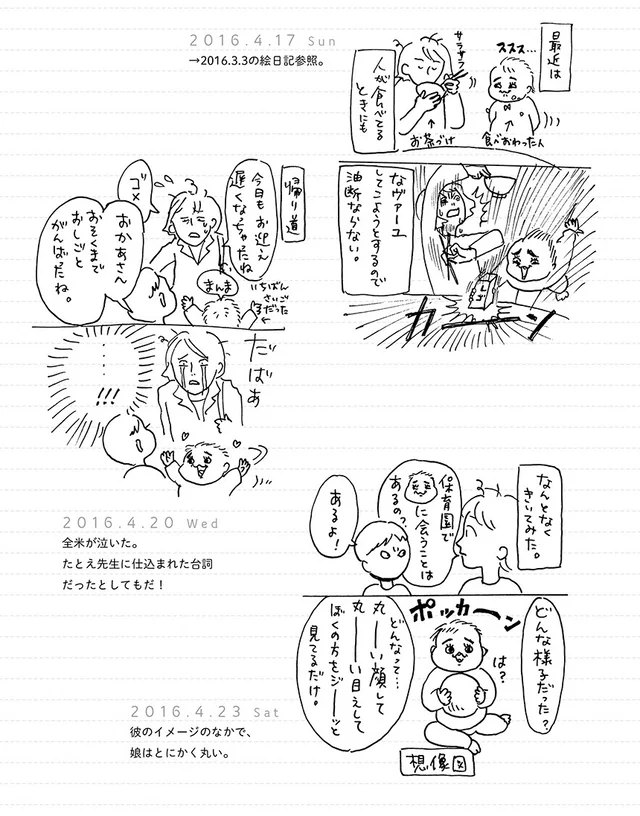 2016.4.17 Sun
→2016.3.3の絵日記参照。
最近は
ススス…
サラサラ
人が食べてる
ときにも
お茶づけ
食べおわった人
なヴァーユ
してこようとするので
油断ならない。
カ
ッ
帰り道
今日もお迎え
遅くなっちゃったね
ゴメ
おかあさん
おそくまで
おしごと
がんばったね。
まんま
いちばん
さいご
だった
だばあ
……
!!!
2016.4.20 Wed
全米が泣いた。
たとえ先生に仕込まれた台詞
だったとしてもだ！
なんとなく
きいてみた。
保育園で
に会うことは
あるの？
あるよ！
どんな様子だった？
ポッカーン
は？
どんなって…
丸ーい顔して
丸ーい目えして
ぼくの方をジーーッと
見てるだけ。
想像図
2016.4.23 Sat
彼のイメージのなかで、
娘はとにかく丸い。